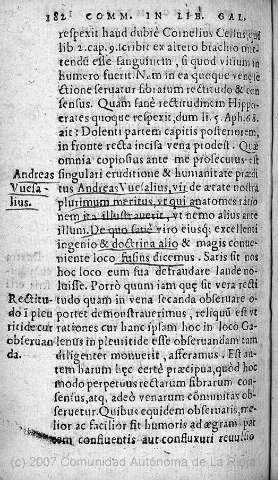 182 COMM. IN LIB. GAL.
respexit haud dubiè Cornelius Celsus, qui
lib 2. cap. 9. scribit ex altero brachio mit
tendũ esse sanguinem, si quod vitium in
humero fuerit. Nam in ea quoque venę se
ctione seruatur fibrarum rectitudo & con
sensus. Quam sanè rectitudinem Hippo-
crates quoque respexit, dum li. 5. Aph. 68.
ait: Dolenti partem capitis posteriorem,
in fronte recta incisa vena prodest. Quæ
omnia copiosius ante me prosecutus est
singulari eruditione & humanitate prædi
tus Andreas Vuesalius, vir de ætate nostra
plurimum meritus, vt qui anatomes ratio
nem ita illustrauerit, vt nemo alius ante
illum. De quo sanè viro eiusq; excellenti
ingenio & doctrina alio & magis conue-
niente loco fusius dicemus. Satis sit nos
hoc loco eum sua defraudare laude no-
luisse. Porrò quum iam quę sit vera recti
tudo quam in vena secanda obseruare o
portet demonstrauerimus, reliquũ est vt
rationes cur hanc ipsam hoc in loco Ga-
lenus in pleuritide esse obseruandam tam
diligenter monuerit, afferamus. Est au-
tem harum hęc certè præcipua, quòd hoc
modo perpetuus rectarum fibrarum con-
sensus, atq; adeò venarum comunitas ob-
seruetur. Quibus equidem obseruatis, me-
lior ac facilior fit humoris ad ægram par
tem confluentis aut confluxuri reuulsio
Andreas
Vuesa-
lius.
Rectitu-
do ĩ pleu
ritide cur
obseruan
da.
(c) 2007 Comunidad Autónoma de La Rioja